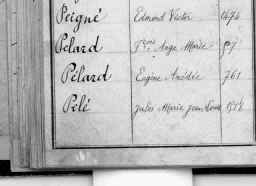 Peigné Edmond Victor 1474
Pelard Ange Marie
Pélard Eugène Amédée 761
Pelé Jules Marie Jean Louis